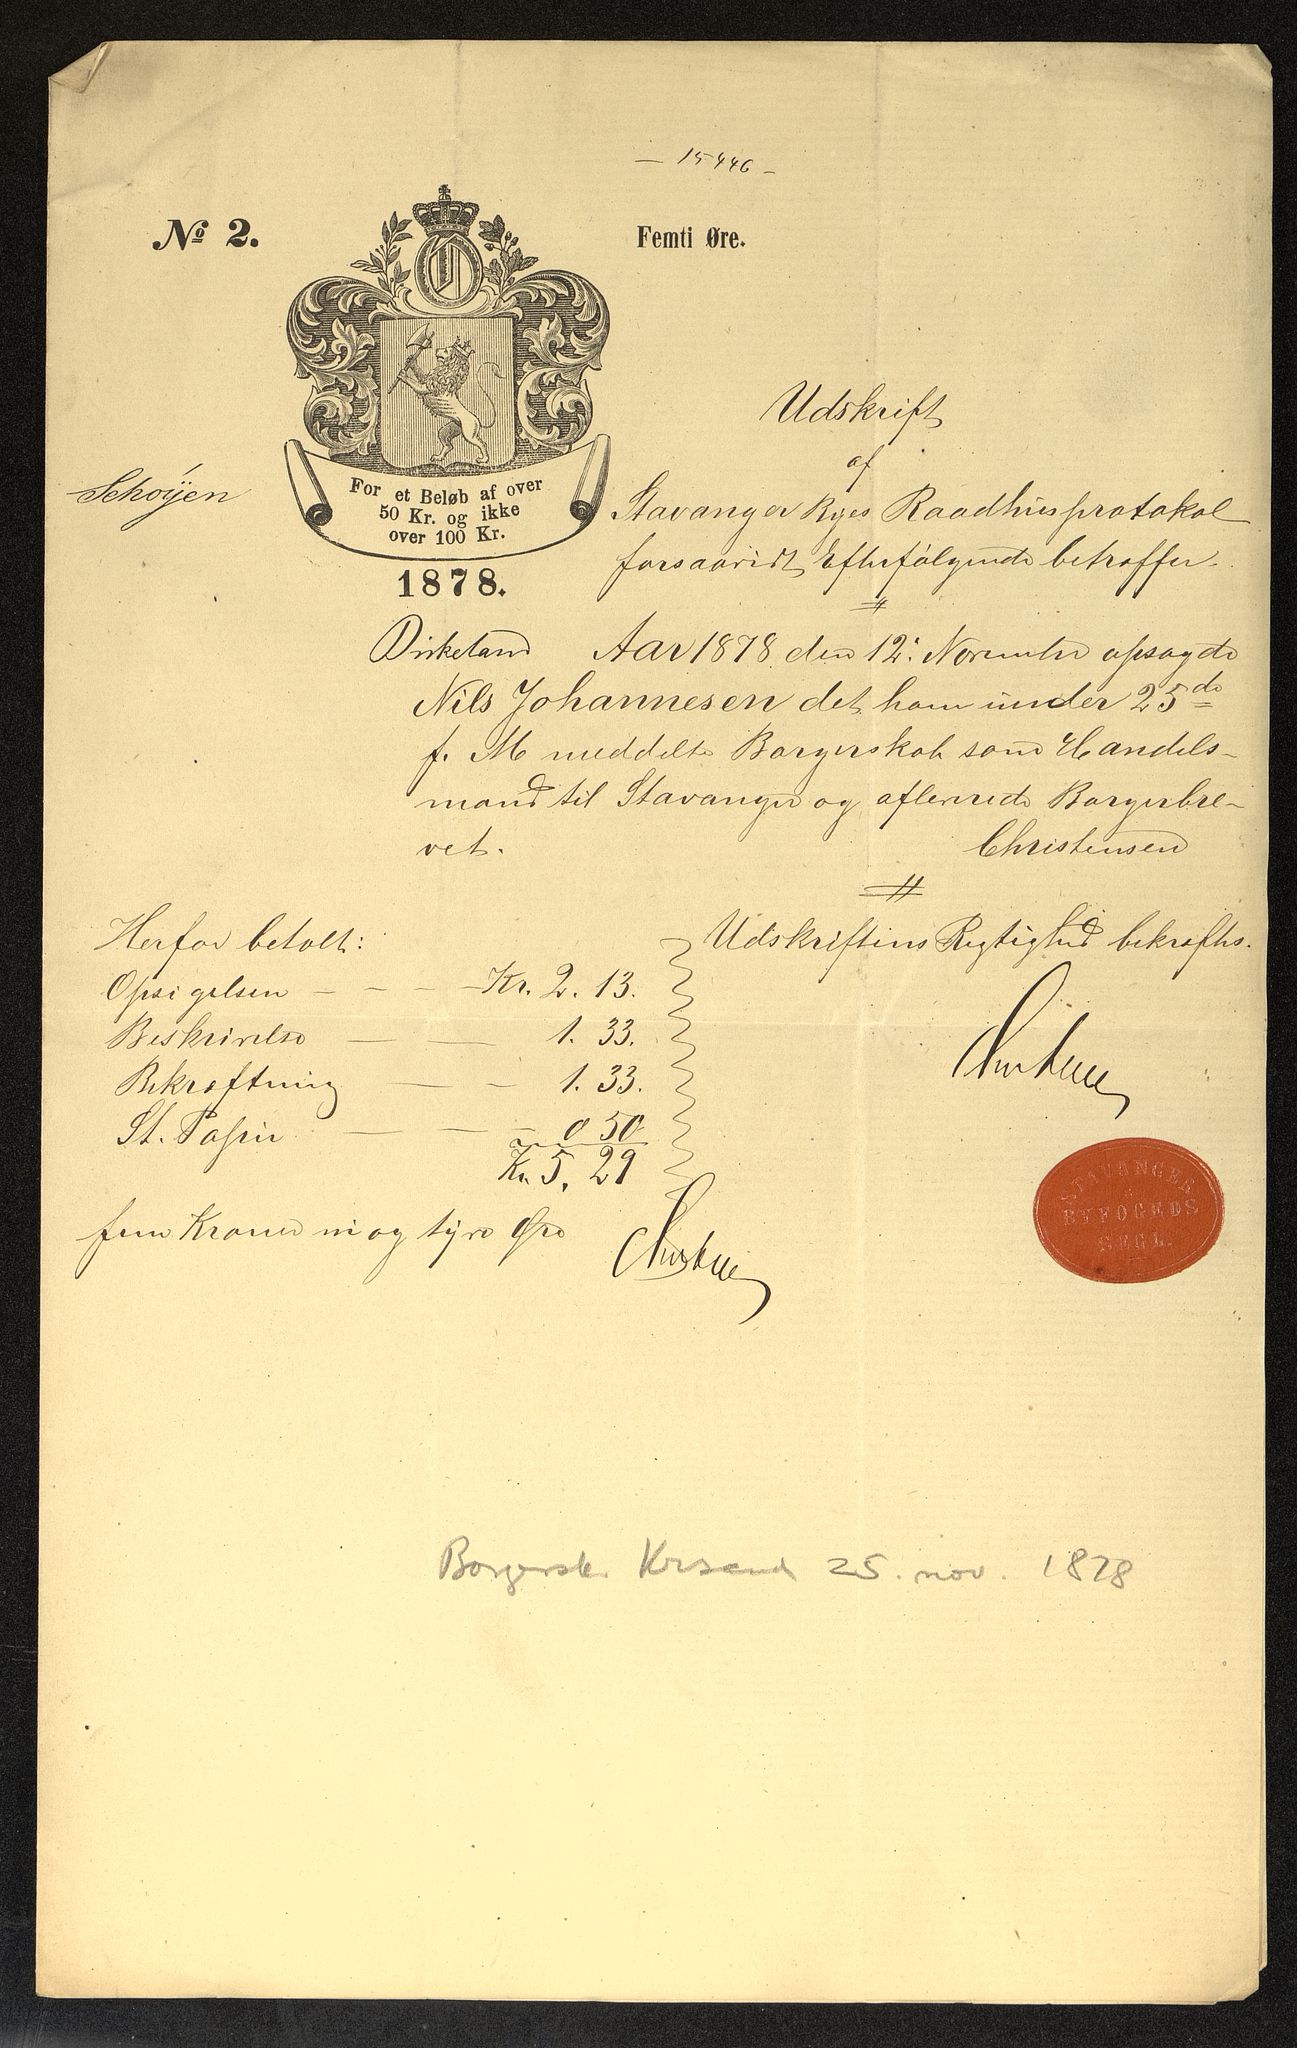 — 15446 —
No 2.
Femti Øre.
For et Beløb af over
50 Kr. og ikke
over 100 Kr.
1878.
Schøyen
Udskrift
af
Stavanger Byes Raadhusprotokol
forsaavidt Efterfølgende betræffer.
Dirketand Aar 1878 den 12' November opsagde
Nils Johannesen det ham under 25de
f. M meddelte Borgerskab som Handels-
mand til Stavanger og afleverede Borgerbre-
vet.
Christensen
Udskriftens Rigtighed bekræftes.
Christensen
Herfor betalt:
Opsigelsen — — — Kr. 2. 13.
Beskrivelse — — 1. 33.
Bekræftning — — 1. 33.
St. Papir — — — 0 50
Kr. 5, 29
fem Kroner ni og tyve Øre
Christensen
STAVANGER
BYFOGEDS
SEGL.
Borgersk. Krsand 25. nov. 1878